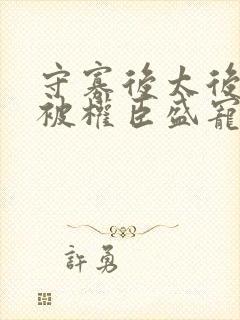 守寡後太後
被權臣盛寵
許勇